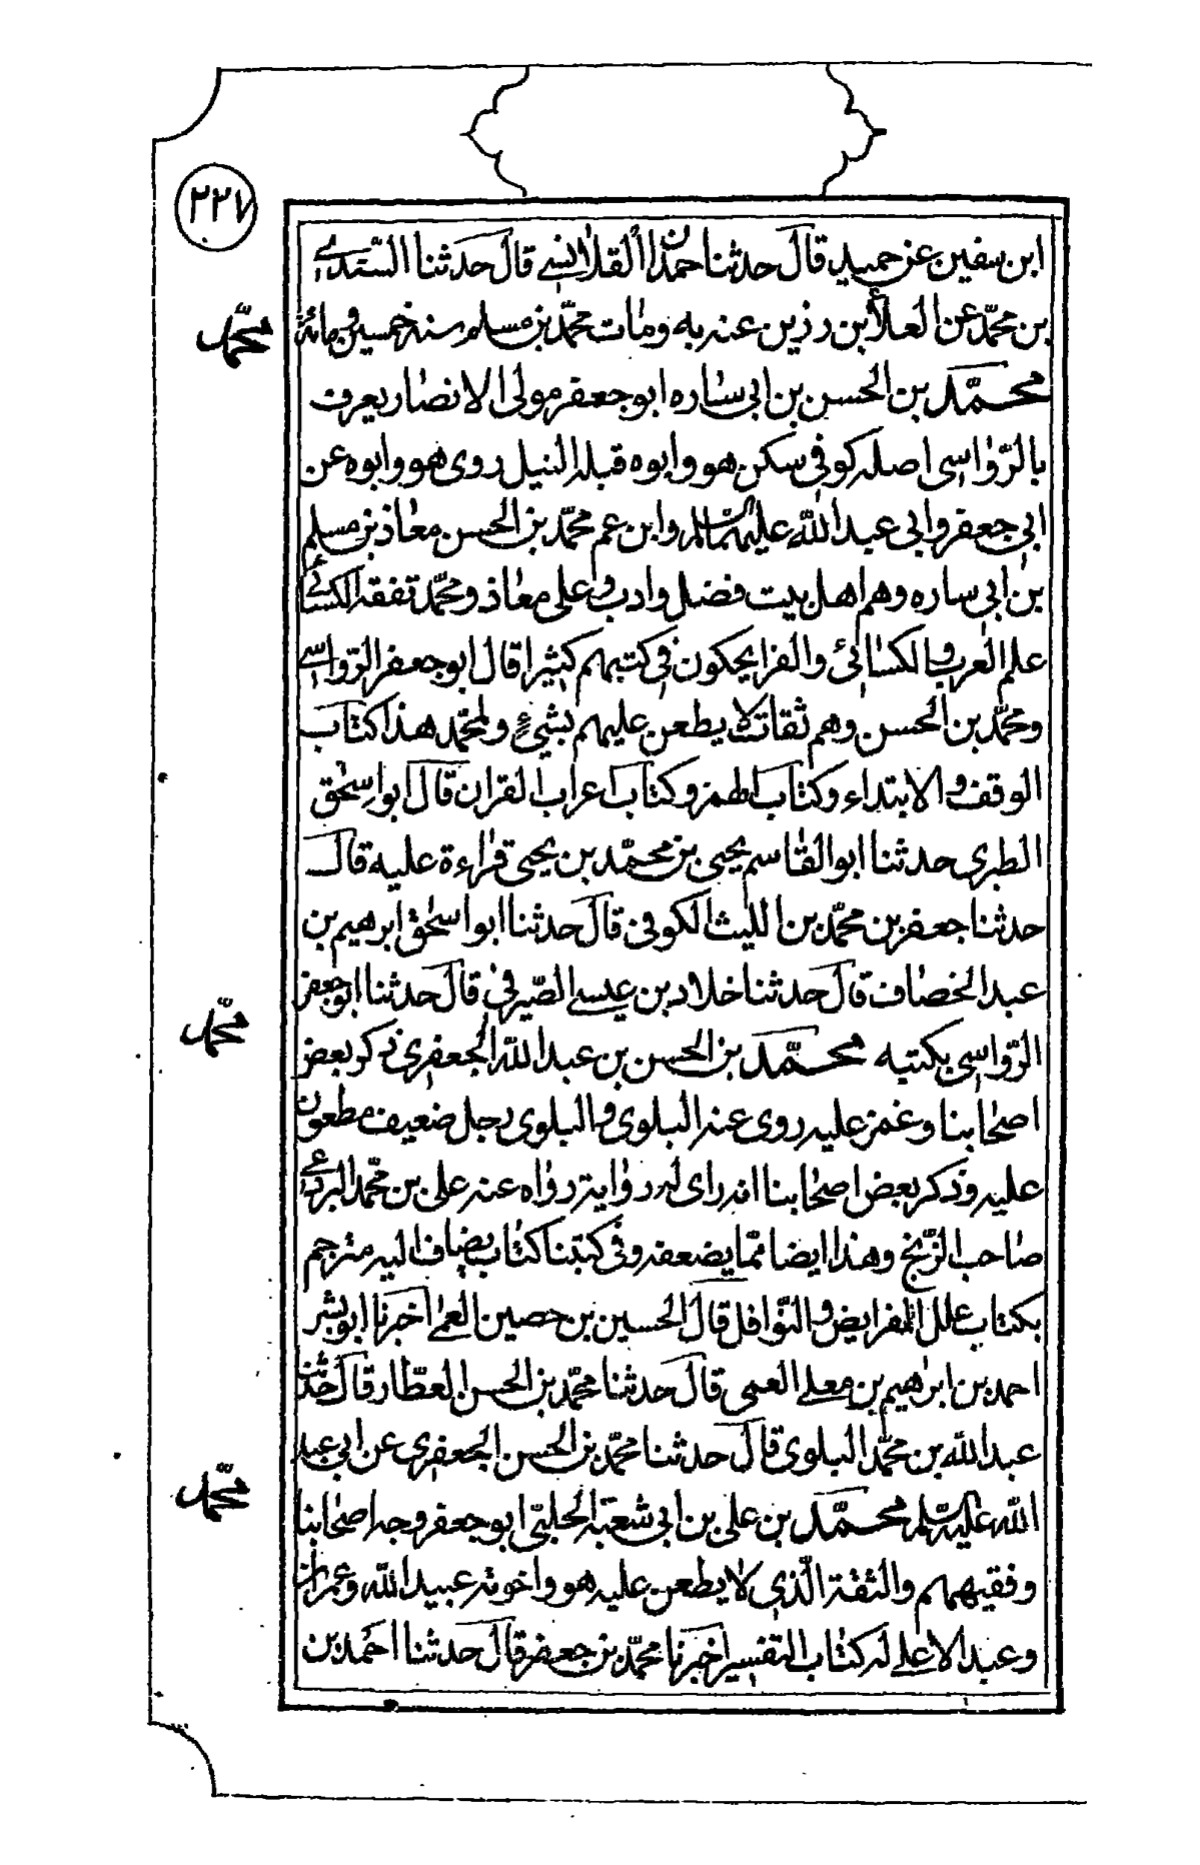 ٢٢٧
ابن سفين عن حميد قال حدثنا حمدان القلانسي قال حدثنا السندي
بن محمد عن العلأ بن رزين عنه به ومات محمد بن مسلم سنه خمسين ومائة
محمد
محمد بن الحسن بن ابي ساره ابو جعفر مولى الانصار يعرف
بالرواسي اصله كوفي سكن هو وابوه قبله النيل روى هو وابوه عن
ابي جعفر وابي عبد الله عليهما السلام وابن عم محمد بن الحسن معاذ بن مسلم
بن ابي ساره وهم اهل بيت فضل وادب وعلى معاذ ومحمد تفقه الكسائي
علم العرب والكسائي والفرا يحكون في كتبهم كثيرا قال ابو جعفر الرواسي
ومحمد بن الحسن وهم ثقات لا يطعن عليهم بشئ ولمحمد هذا كتاب
الوقف والابتداء وكتاب الهمز وكتاب اعراب القران قال ابو اسحق
الطبري حدثنا ابو القاسم يحيى بن محمد بن يحيى قراءة عليه قال
حدثنا جعفر بن محمد بن الليث الكوفي قال حدثنا ابو اسحق ابرهيم بن
عبد الخصاف قال حدثنا خلاد بن عيسى الصيرفي قال حدثنا ابو جعفر
الرواسي بكتبه محمد بن الحسن بن عبد الله الجعفري ذكر بعض
محمد
اصحابنا وغمز عليه روى عنه البلوى والبلوى رجل ضعيف مطعون
عليه وذكر بعض اصحابنا انه راى له رواية رواه عنه على بن محمد البردعي
صاحب الزنج وهذا ايضا مما يضعفه وفي كتبنا كتاب يضاف اليه مترجم
بكتاب علل الفرايض والنوافل قال الحسين بن حصين العمي اخبرنا ابو بشر
احمد بن ابرهيم بن معلى العمى قال حدثنا محمد بن الحسن العطار قال حدثنا
عبد الله بن محمد البلوى قال حدثنا محمد بن الحسن الجعفري عن ابي عبد
الله عليه السلم محمد بن علي بن ابي شعبة الحلبي ابو جعفر وجه اصحابنا
محمد
وفقيههم والثقة الذي لا يطعن عليه هو واخوته عبيد الله وعمران
وعبد الاعلى له كتاب التفسير اخبرنا محمد بن جعفر قال حدثنا احمد بن